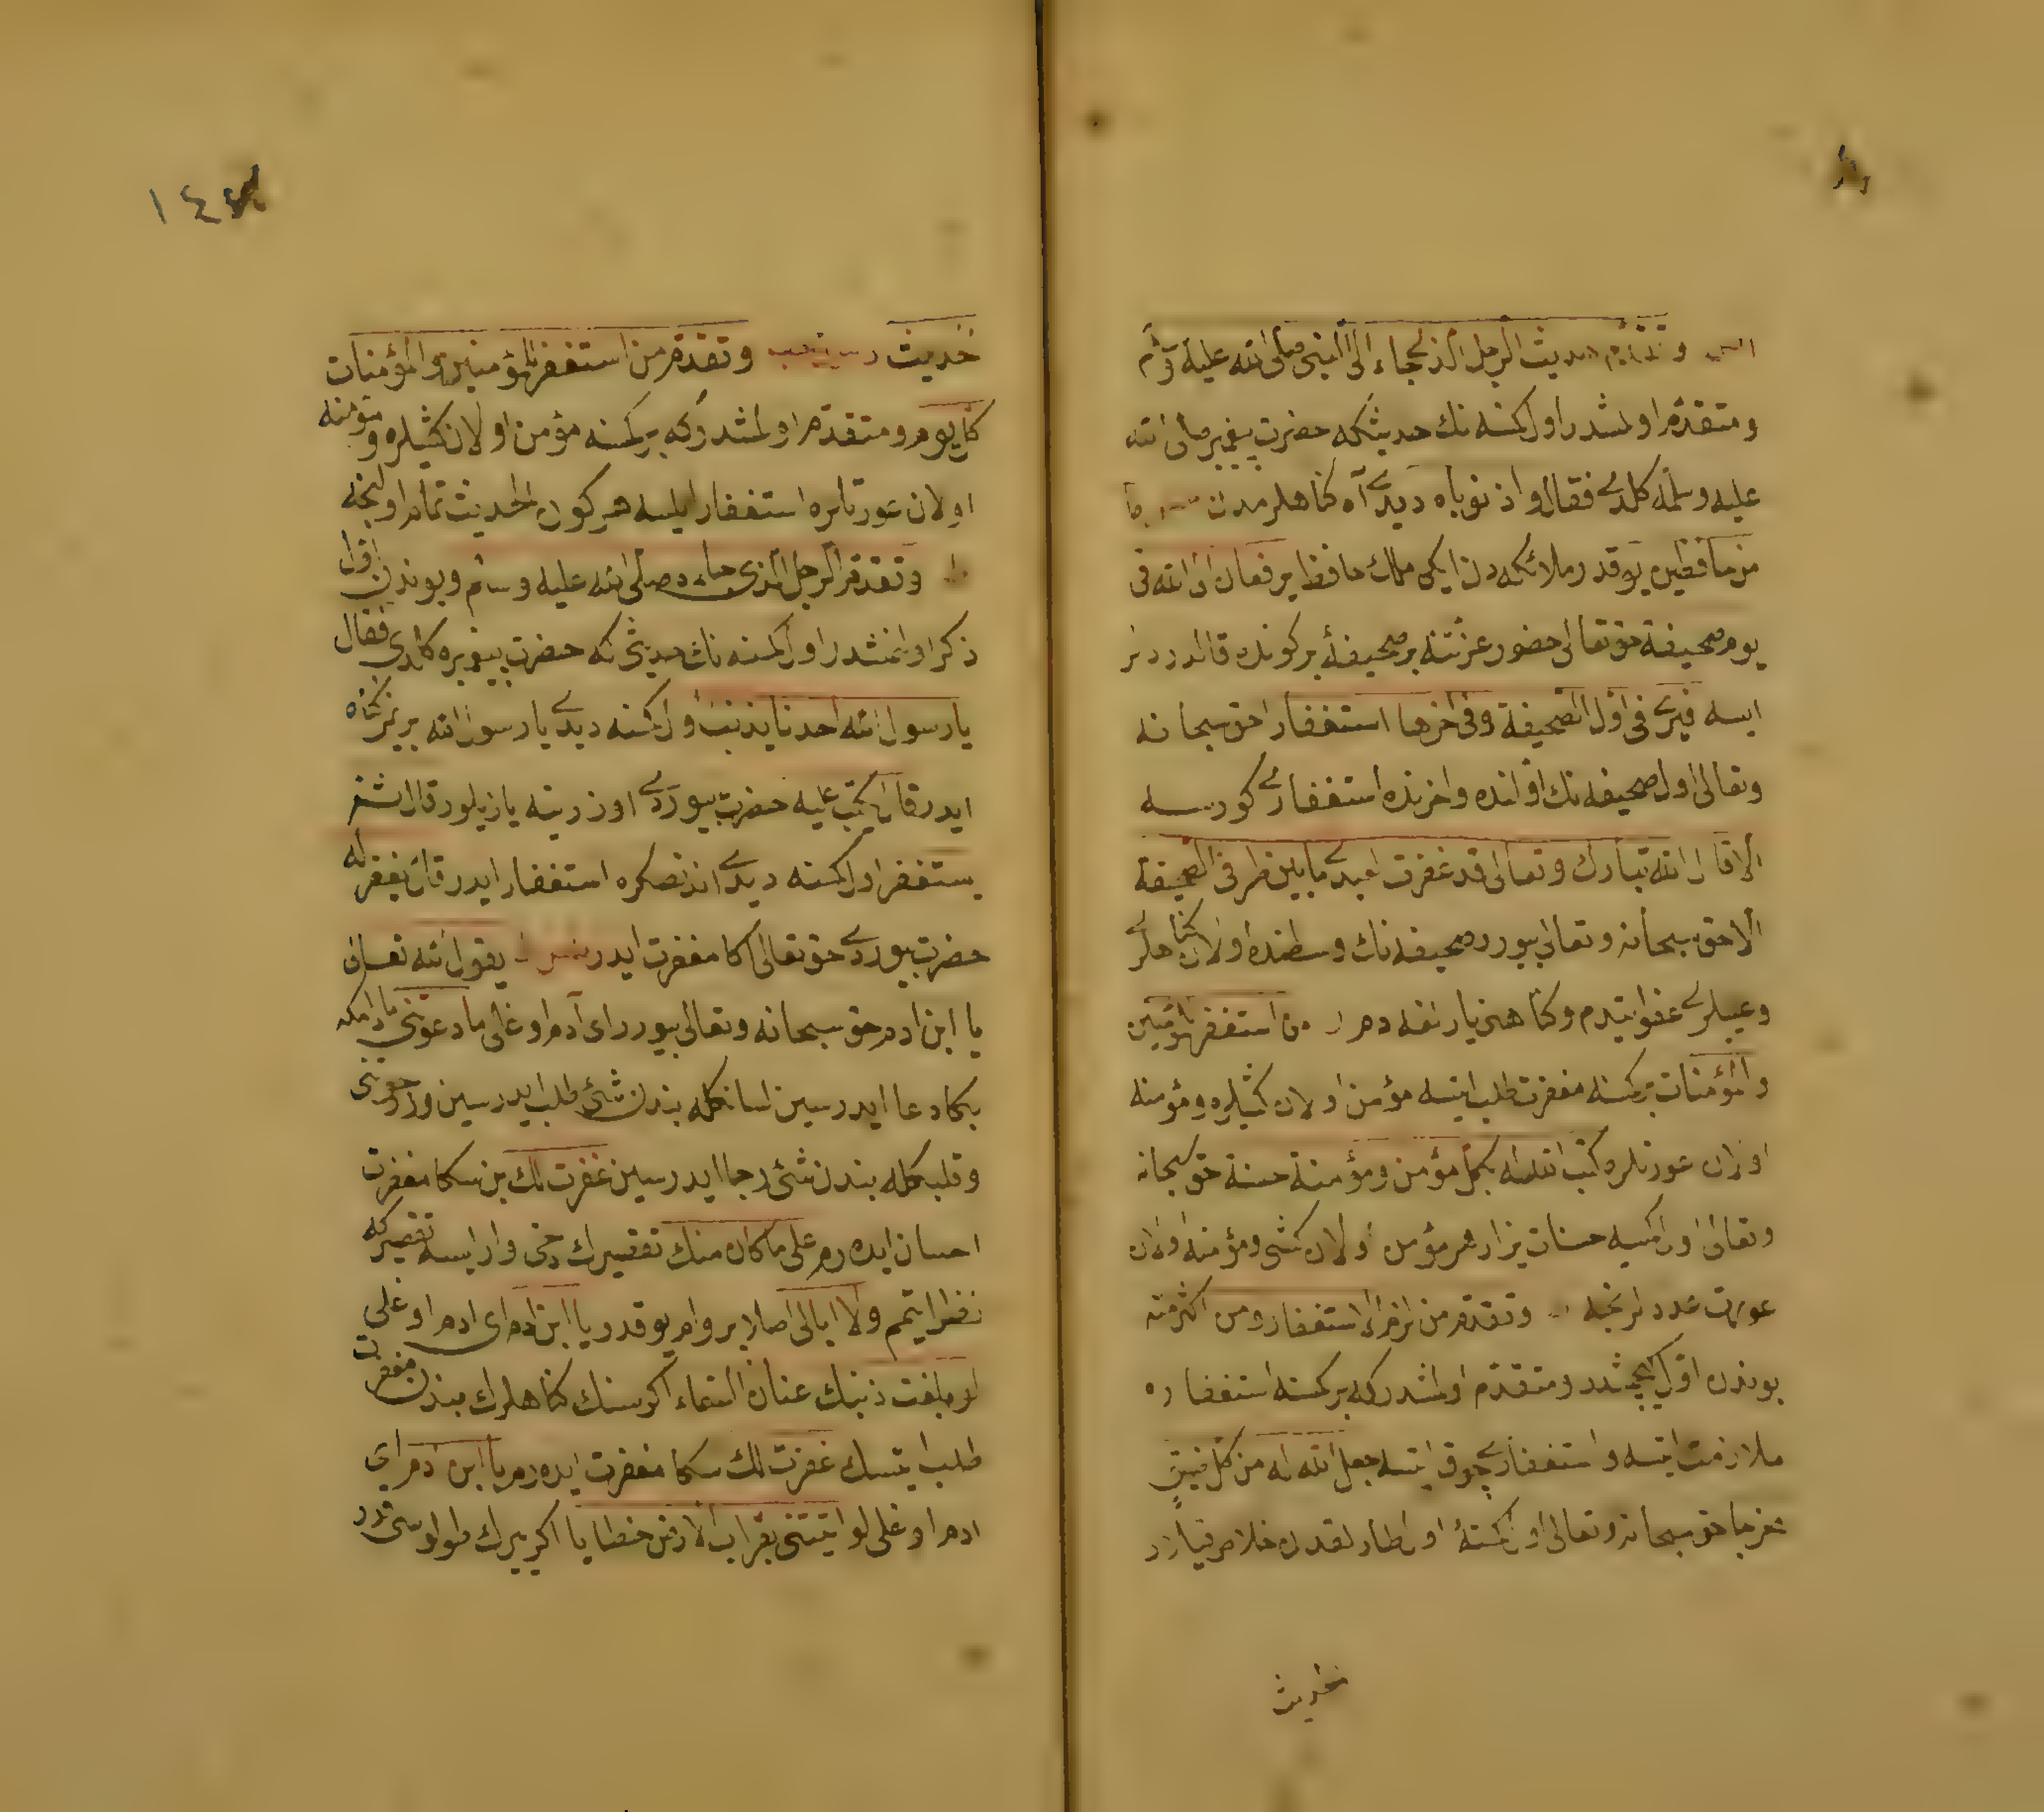 وتقدم حديث الرجل الذي جاء الى النبي صلى الله عليه وسلم
ومتقدم اولمشدر اول كمسه نك حديثكه حضرت پيغمبر صلى الله
عليه وسلمه كلدى فقال واذنوباه ديدى آه كناهلرمدن
من حافظين يوقدر ملائكه دن ايكى ملك حافظ يرفعان الى الله فى
يوم صحيفة حق تعالى حضور عزتنه بر صحيفه بر كونده قالدررلر
ايسه فيرى فى اول الصحيفة وفى اخرها استغفارا حق سبحانه
وتعالى اول صحيفه نك اولنده واخرنده استغفارى كورسه
الا قال الله تبارك وتعالى قد غفرت لعبدى ما بين طرفى الصحيفة
الا حق سبحانه وتعالى بيورر صحيفه نك وسطنده اولان كناهلرى
وعيبلرى عفو ايتدم وكناهنى يارلغه دم من استغفر للمؤمنين
والمؤمنات بر كمسه مغفرت طلب ايتسه مؤمن اولان كشيلره ومؤمنه
اولان عورتلره كتب الله له بكل مؤمن ومؤمنة حسنة حق سبحانه
وتعالى اول كمسيه حسنات يزار هر مؤمن اولان كشى ومؤمنه اولان
عورت عددلرنجه وتقدم من لزم الاستغفار ومن اكثر منه
بوندن اول كچمشدر ومتقدم اولمشدركه بر كمسه استغفاره
ملازمت ايتسه واستغفارى چوق ايتسه جعل الله له من كل ضيق
مخرجا حق سبحانه وتعالى اول كمسه اول طارلقدن خلاص قيلار
حديث
١٤٧
حديث وتقدم من استغفر للمؤمنين والمؤمنات
كل يوم ومتقدم اولمشدركه بر كمسه مؤمن اولان كشيلره ومؤمنه
اولان عورتلره استغفار ايليسه هر كون الحديث تمام اولنجه
وتقدم الرجل الذى جاءه صلى الله عليه وسلم وبوندن اول
ذكر اولنمشدر اول كمسه نك حديثى كه حضرت پيغمبره كلدى فقال
يا رسول الله احدنا يذنب اول كمسه ديدى يا رسول الله بريمز كناه
ايدر قال يكتب عليه حضرت بيوردى اوزرينه يازيلور قال ثم
يستغفر اول كمسه ديدى اندنصكره استغفار ايدر قال يغفر له
حضرت بيوردى حق تعالى اكا مغفرت ايدر يقول الله تعالى
يا ابن ادم حق سبحانه وتعالى بيورر اى آدم اوغلى ما دعوتنى مادامكه
بكا دعا ايدرسين لسانكله بندن شئ طلب ايدرسين ورجوتنى
وقلبكله بندن شئ رجا ايدرسين غفرت لك بن سكا مغفرت
احسان ايده رم على ما كان منك تقصيرك دخى وار ايسه تقصيركه
نظر ايتمم ولا ابالى اصلا پروام يوقدر يا ابن ادم اى ادم اوغلى
لو بلغت ذنبك عنان السماء اكر سنك كناهلرك بندن مغفرت
طلب ايتسك غفرت لك سكا مغفرت ايده رم يا ابن ادم اى
ادم اوغلى لو اتيتنى بقراب الارض خطايا اكر يرك طولوسى قدر